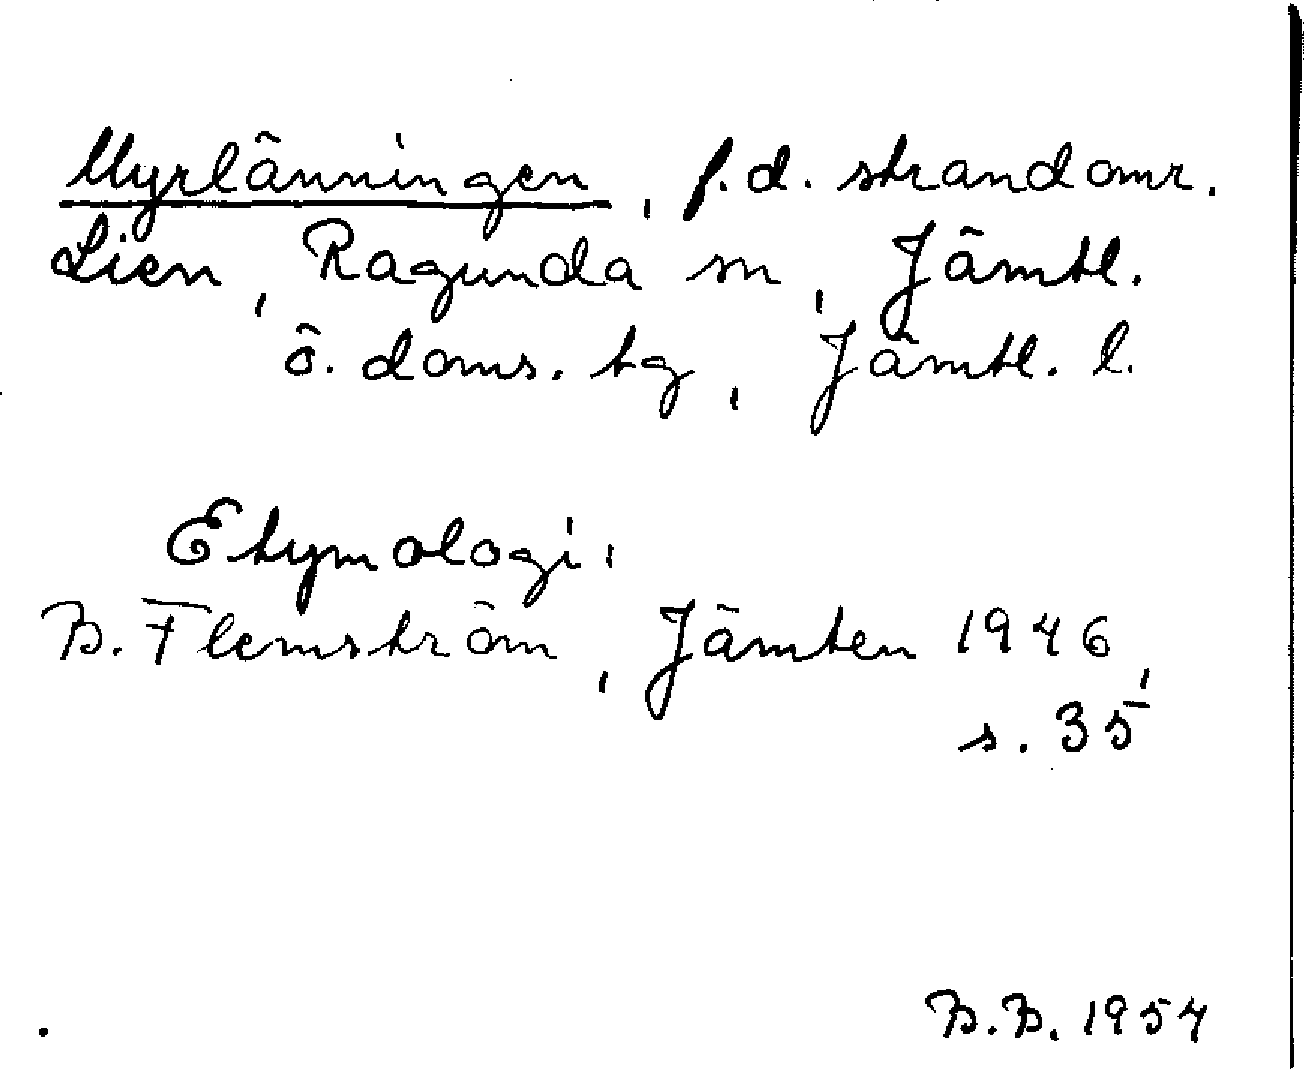 Myrlänningen, f.d. strandomr.
Lien, Ragunda sn, Jämtl.
ö. doms. tg, Jämtl. l.
Etymologi:
B. Flemström, Jämten 1946,
s. 35
B.B. 1954